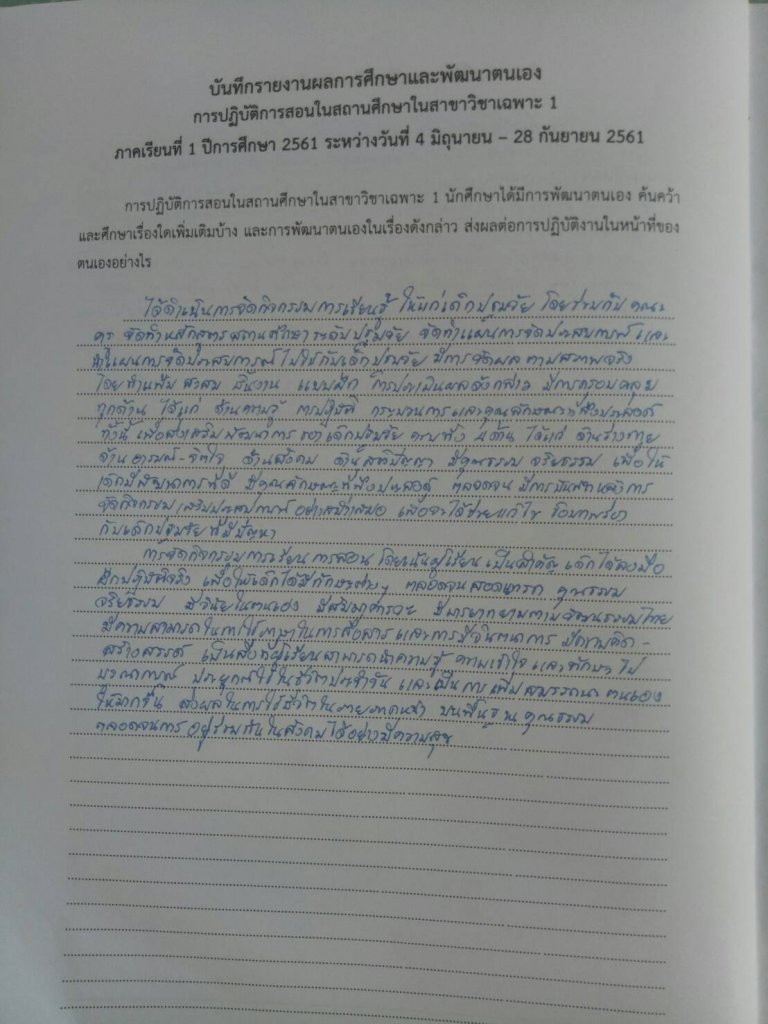 บันทึกรายงานผลการศึกษาและพัฒนาตนเอง
การปฏิบัติการสอนในสถานศึกษาในสาขาวิชาเฉพาะ 1
ภาคเรียนที่ 1 ปีการศึกษา 2561 ระหว่างวันที่ 4 มิถุนายน – 28 กันยายน 2561
การปฏิบัติการสอนในสถานศึกษาในสาขาวิชาเฉพาะ 1 นักศึกษาได้มีการพัฒนาตนเอง ค้นคว้า
และศึกษาเรื่องใดเพิ่มเติมบ้าง และการพัฒนาตนเองในเรื่องดังกล่าว ส่งผลต่อการปฏิบัติงานในหน้าที่ของ
ตนเองอย่างไร
ได้ดำเนินการจัดกิจกรรมการเรียนรู้ ให้แก่เด็กปฐมวัย โดยร่วมกับ คณะ
ครู จัดทำหลักสูตรสถานศึกษาระดับปฐมวัย จัดทำแผนการจัดประสบการณ์ และ
นำแผนการจัดประสบการณ์ ไปใช้กับเด็กปฐมวัย มีการวัดผล ตามสภาพจริง
โดยทำแฟ้ม สะสม ชิ้นงาน แบบฝึก การประเมินผลดังกล่าว มีการครอบคลุม
ทุกด้าน ได้แก่ ด้านความรู้ การปฏิบัติ กระบวนการและคุณลักษณะที่พึงประสงค์
ทั้งนี้ เพื่อส่งเสริมพัฒนาการ ของเด็กปฐมวัย ครบทั้ง 4 ด้าน ได้แก่ ด้านร่างกาย
ด้าน อารมณ์-จิตใจ ด้านสังคม ด้านสติปัญญา มีคุณธรรม จริยธรรม เพื่อให้
เด็กมีพัฒนาการที่ดี มีคุณลักษณะที่พึงประสงค์ ตลอดจน มีการบันทึกหลังการ
จัดกิจกรรมเสริมประสบการณ์ อย่างสม่ำเสมอ เพื่อจะได้ช่วยแก้ไข
กับเด็กปฐมวัยที่มีปัญหา
การจัดกิจกรรมการเรียน การสอน โดยเน้นผู้เรียน เป็นสำคัญ เด็กได้ลงมือ
ฝึกปฏิบัติจริง เพื่อให้เด็กได้มีทักษะต่างๆ ตลอดจนสอดแทรก คุณธรรม
จริยธรรม มีวินัยในตนเอง มีสัมมาคารวะ มีมารยาทงามตามวัฒนธรรมไทย
มีความสามารถในการใช้ภาษาในการสื่อสาร และการมีจินตนาการ มีความคิด-
สร้างสรรค์ เป็นสิ่งที่ผู้เรียนสามารถนำความรู้ ความเข้าใจ และทักษะ ไป
บูรณาการ ประยุกต์ใช้ในชีวิตประจำวัน และเป็นการเพิ่มสมรรถนะ ตนเอง
ให้มากขึ้น ส่งผลในการใช้ชีวิตในภายภาคหน้า บนพื้นฐานคุณธรรม
ตลอดจนการอยู่ร่วมกันในสังคมได้อย่างมีความสุข